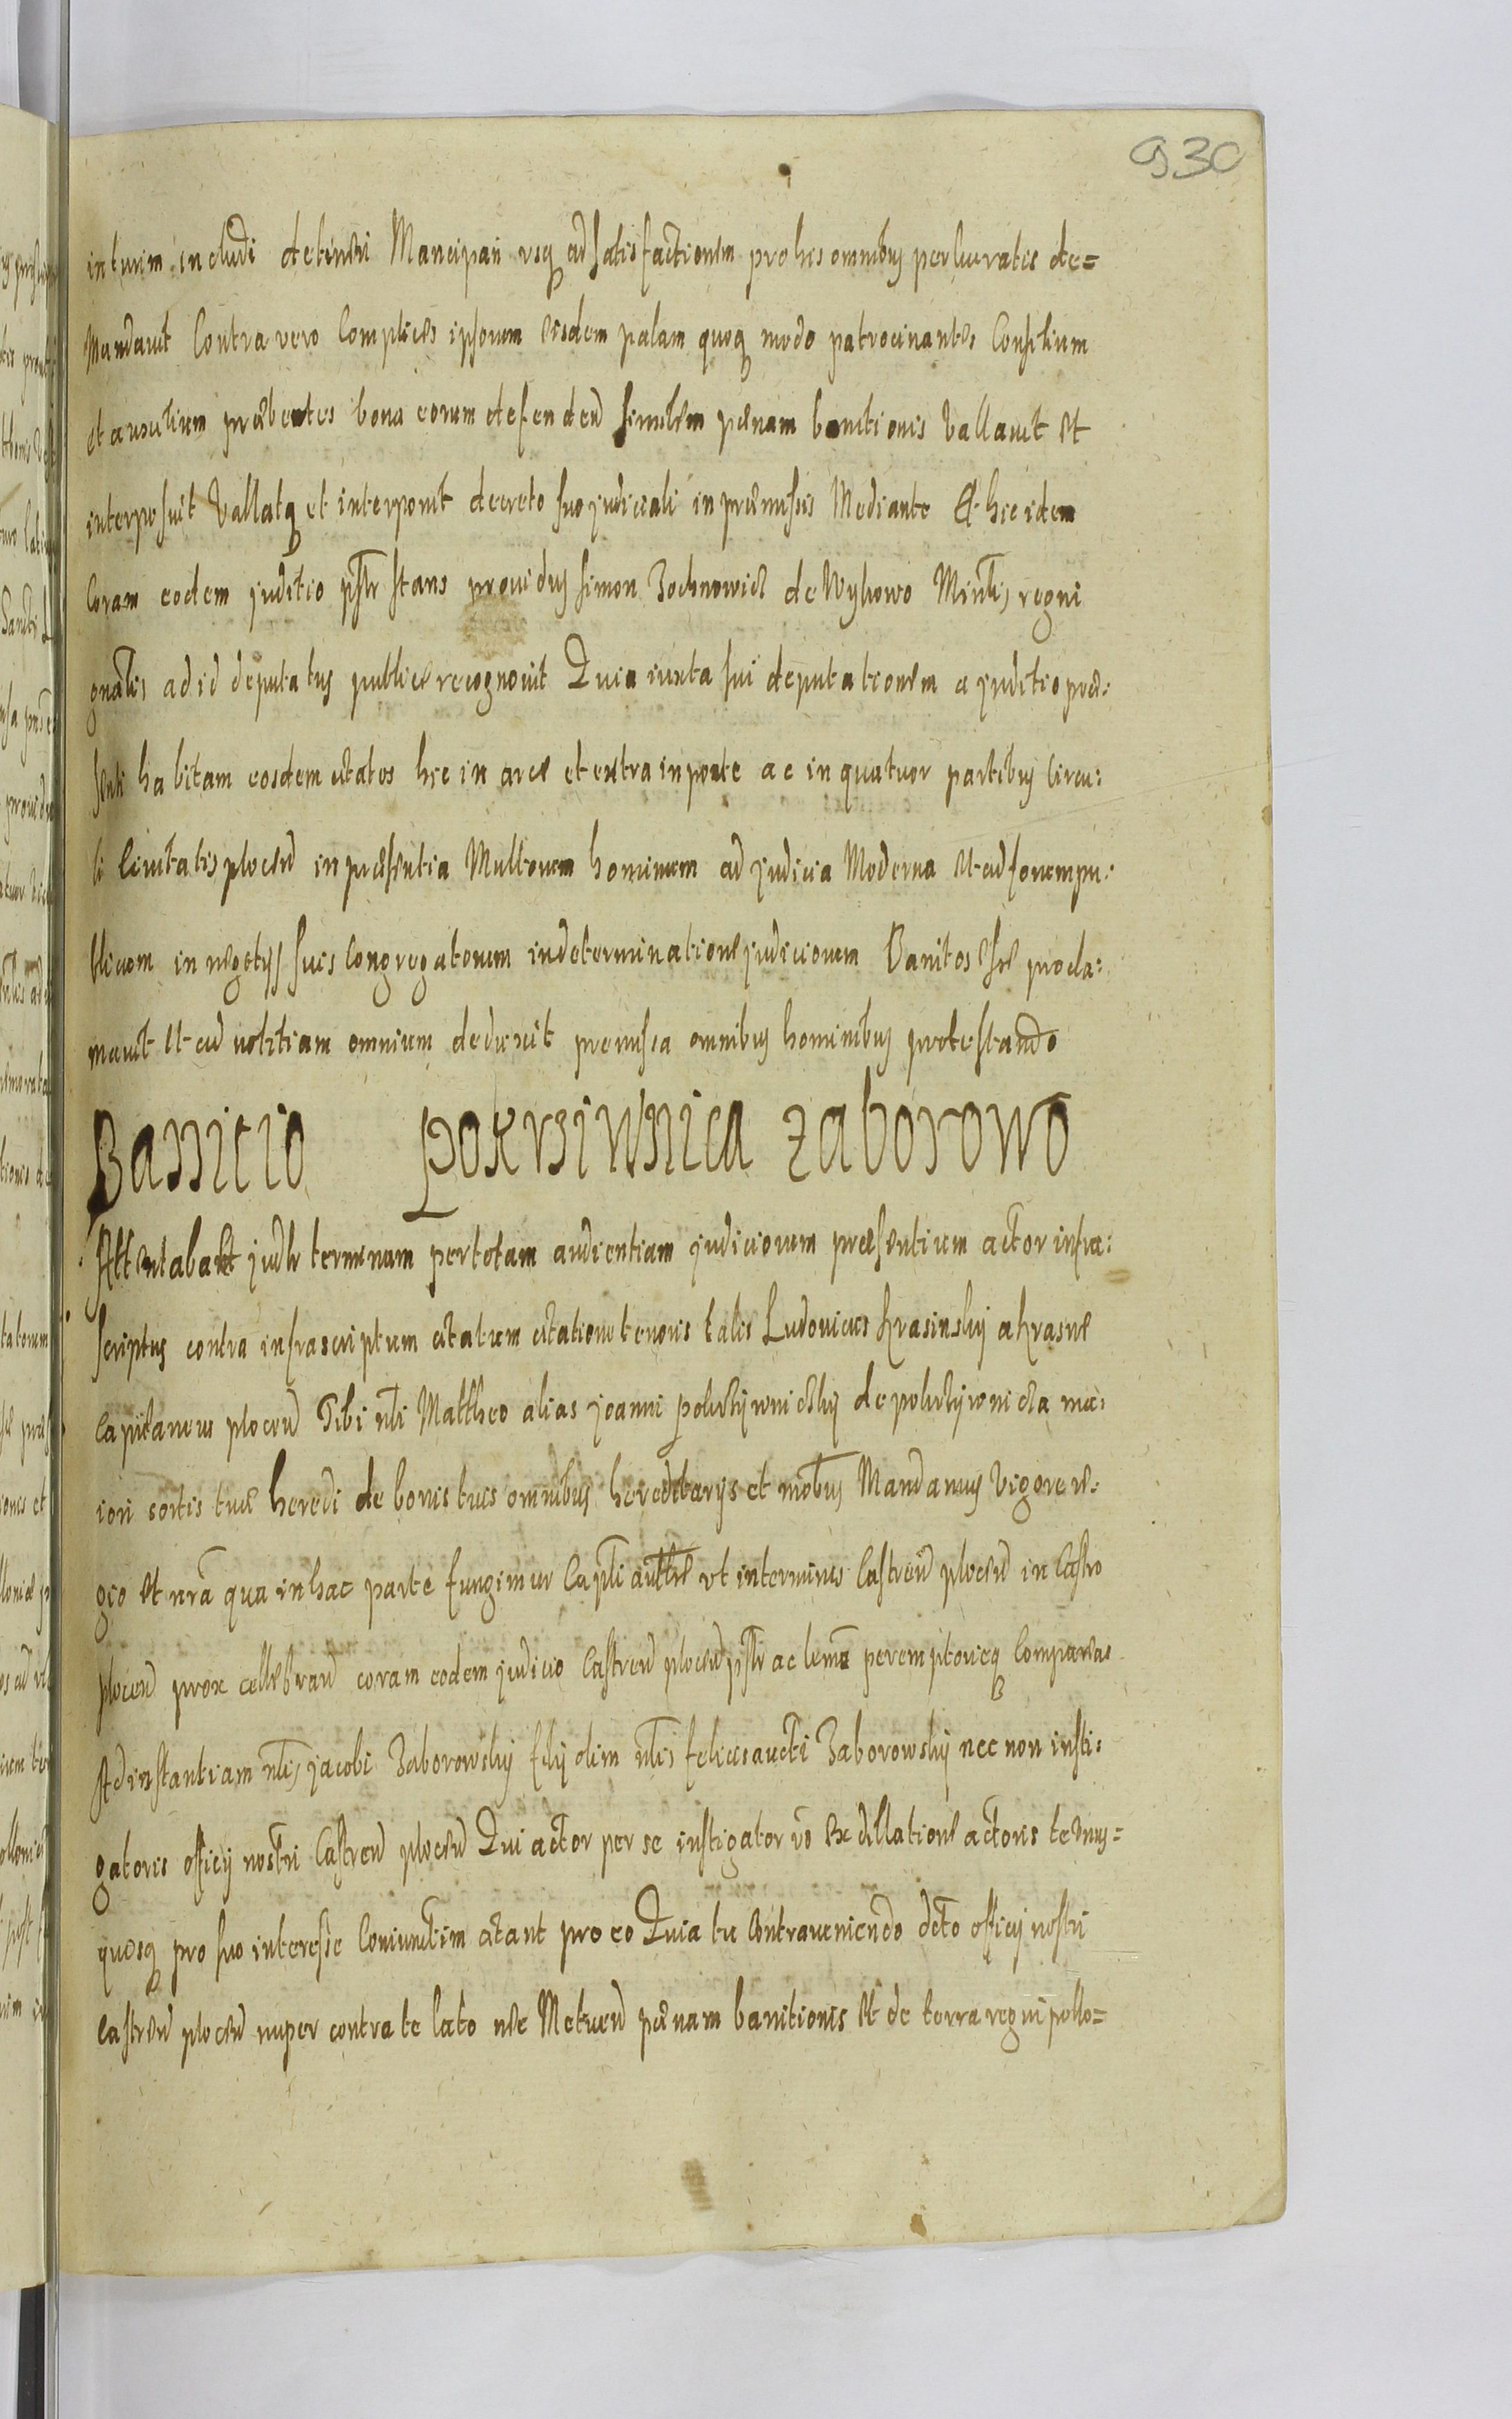 930
inturim includi detineri Mancipari usq ad satisfactionem pro his omnibus perlucratis de=
Mandavit Contra vero Complices ipsorum eisdem palam quoq modo patrocinantes Consilium
et auxilium præbentes bona eorum defendend similem pænam banitionis Vallavit et
interposuit Vallatq et interponit decreto suo judiciali in præmissis Mediante Et hic idem
Coram eodem juditio pstr stans providus Simon Zochnowicz de Wykowo Mintr, regni
gnalis ad id deputatus publice recognovit Quia iuxta sui deputationem a juditio præ:
senti habitam eosdem citatos hic in arce et extra in ponte ac in quatuor partibus Circu:
li Civitatis plocen in præsentia Multorum hominum ad judicia Moderna et ad forum pu:
blicum in negotys suis Congregatorum in determinatione judiciorum Banitos esse procla:
mavit et ad notitiam omnium deduxit premissa omnibus hominibus protestando
Banicio pokrsiwnica zaborowo
Attentabat judr terminum per totam audientiam judiciorum præsentium actor infra:
scriptus contra infrascriptum citatum citatione tenoris talis Ludovicus Krasinsky a Krasne
Capitaneus plocen Tibi nli Mattheo alias joanni pokrzywnicky de pokrzywnicza ma:
iori sortis tuæ heredi de bonis tuis omnibus hereditarys et mobus Mandamus Vigore re:
gio et nra qua in hac parte fungimur Capli authe ut in terminis Castren plocen in Castro
plocen prox cellebrand coram eodem judicio Castren plocen pstr ac leme peremptorieq Compareas
Ad instantiam nlis jacobi Zaborowsky fily olim nlis felicis aucti Zaborowsky nec non insti:
gatoris officy nostri Castren plocen Qui actor per se instigator vo ex dillatione actoris te
quosq pro suo interesse Coniunctim citant pro eo Quia tu Contraveniendo dcto officy nostri
Castren plocen nuper contra te lato nec Metuend pænam banitionis et de terra regni pollo=